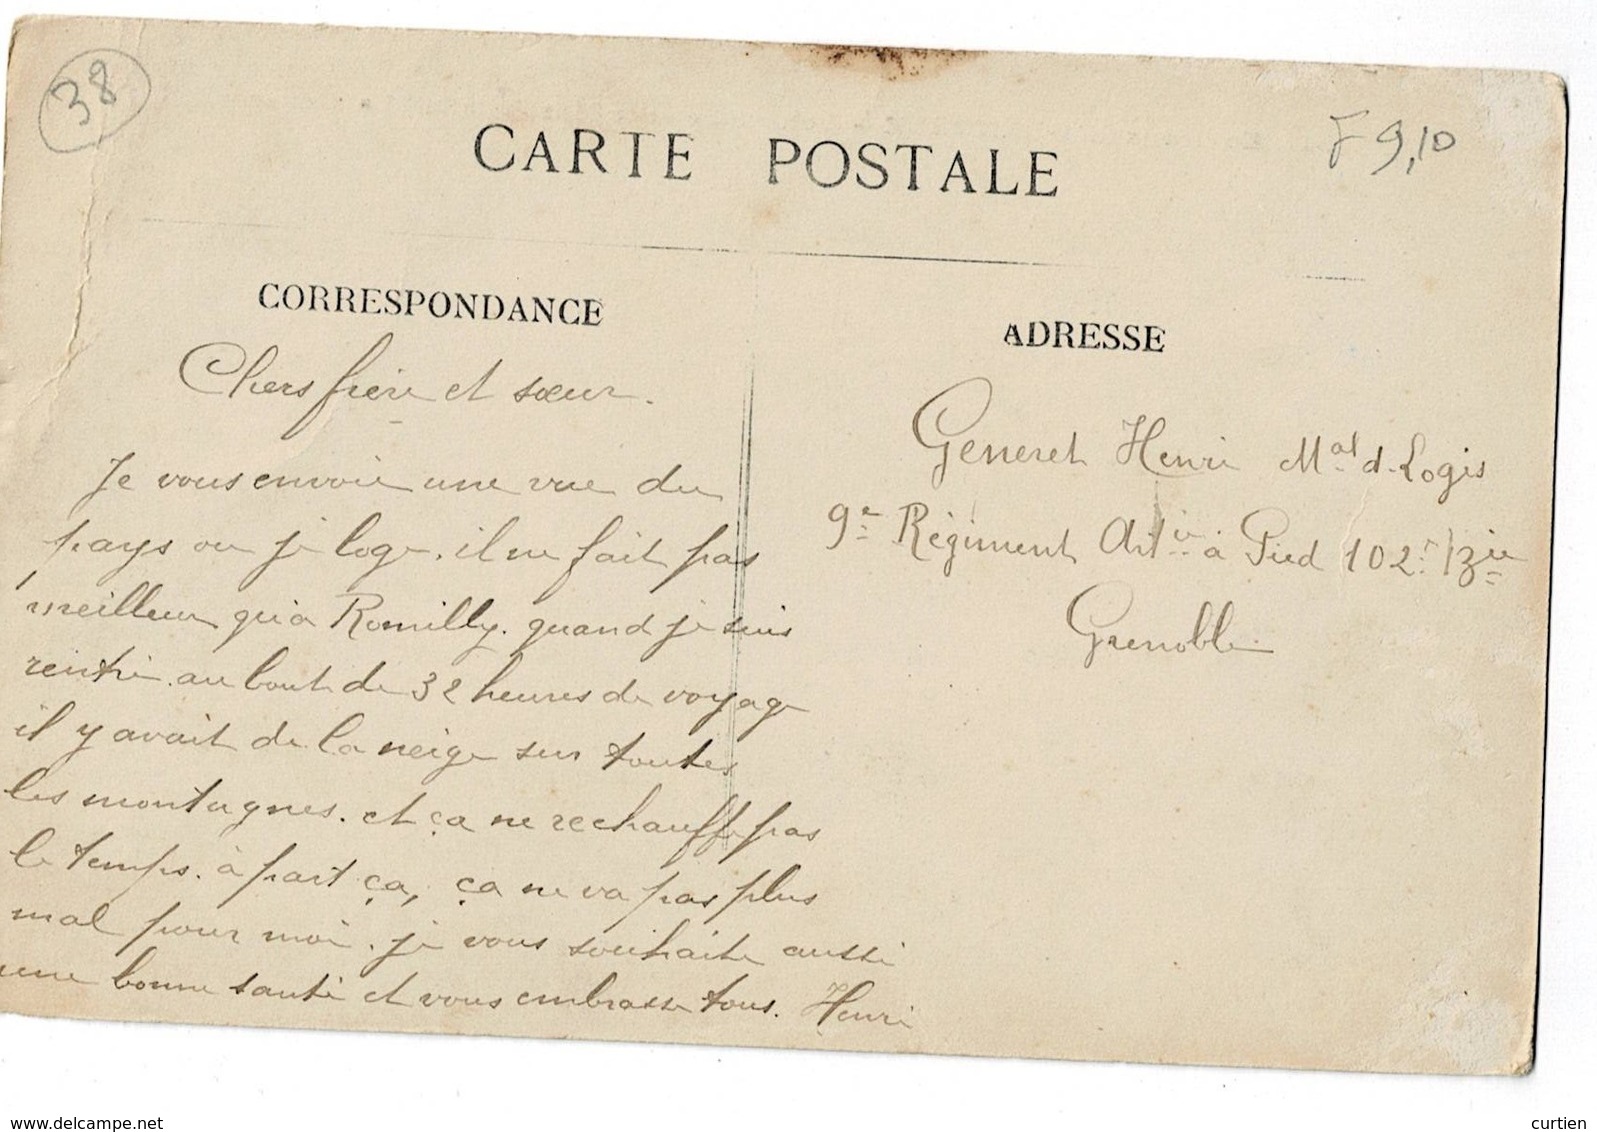 38
F 9,10
CARTE POSTALE
CORRESPONDANCE
Chers frère et sœur.
Je vous envoie une vue du
pays ou je loge. il ne fait pas
meilleur qu'a Romilly. quand je suis
rentré au bout de 32 heures de voyage
il y avait de la neige sur toutes
les montagnes. et ça ne rechauffe pas
le temps. à part ça, ça ne va pas plus
mal pour moi. je vous souhaite aussi
une bonne santé et vous embrasse tous. Henri
ADRESSE
Generet Henri Mal d. Logis
9e Régiment Artie à Pied 102e Bie
Grenoble
www.delcampe.net
curtien